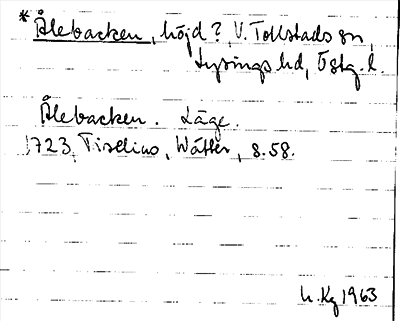 * Ålebacken, höjd? V. Tollstads sn,
Lysings hd, Östg. l.
Ålebacken. Läge.
1723, Tiselius, Wätter, s. 58.
h. Kg 1963